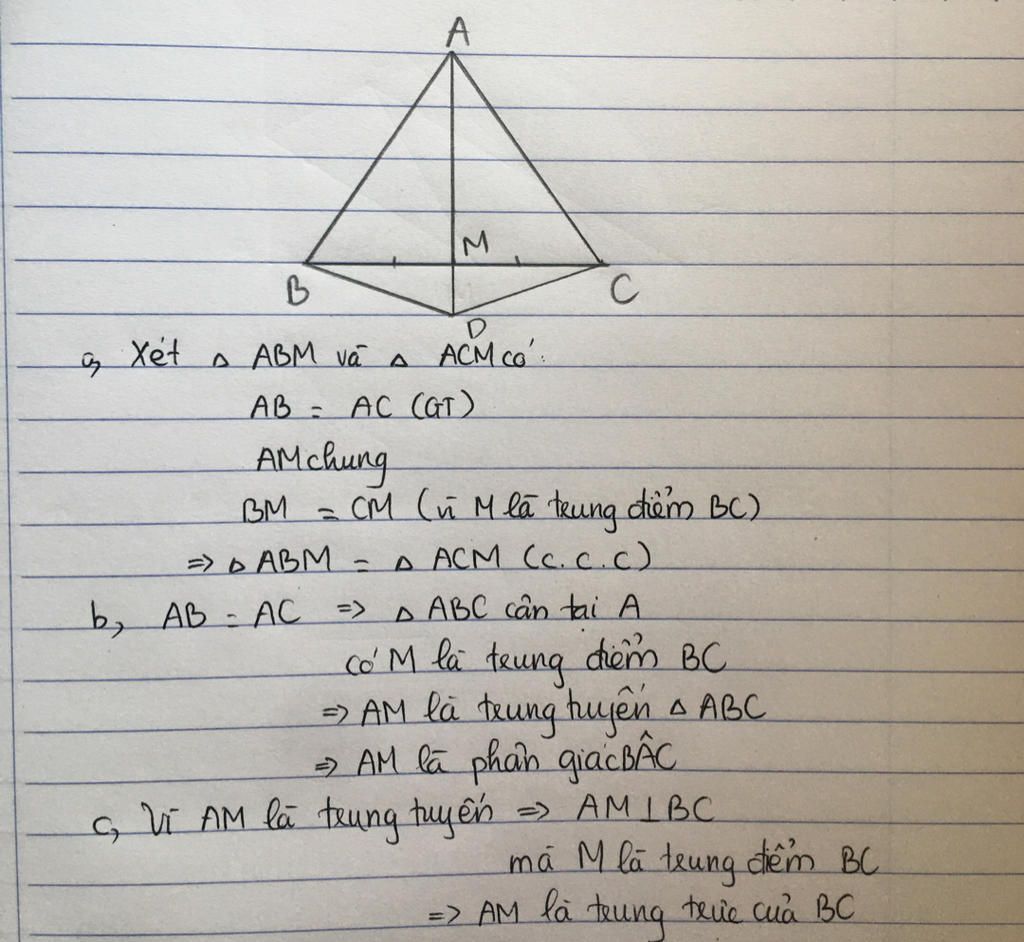 A
M
B
C
D
a, Xét △ ABM và △ ACM có:
AB = AC (GT)
AM chung
BM = CM (vì M là trung điểm BC)
=> △ ABM = △ ACM (c.c.c)
b, AB = AC => △ ABC cân tại A
có M là trung điểm BC
=> AM là trung tuyến △ ABC
=> AM là phân giác BÂC
c, Vì AM là trung tuyến => AM ⊥ BC
mà M là trung điểm BC
=> AM là trung trực của BC